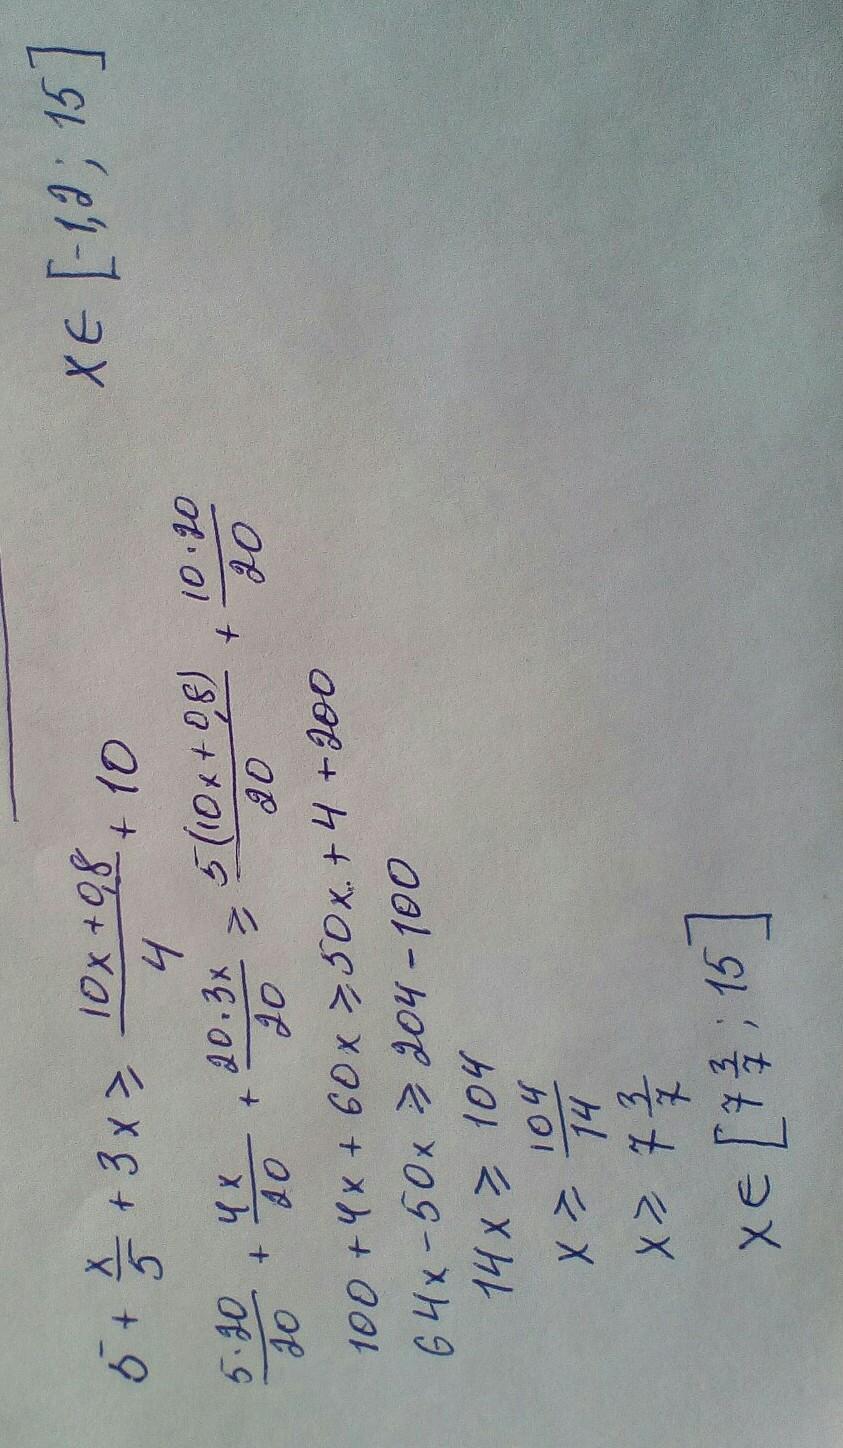 x ∈ [-1,2 ; 15]
5 + x/5 + 3x ≥ (10x + 0,8)/4 + 10
5·20/20 + 4x/20 + 20·3x/20 ≥ 5(10x + 0,8)/20 + 10·20/20
100 + 4x + 60x ≥ 50x + 4 + 200
64x - 50x ≥ 204 - 100
14x ≥ 104
x ≥ 104/14
x ≥ 7 3/7
x ∈ [7 3/7 ; 15]